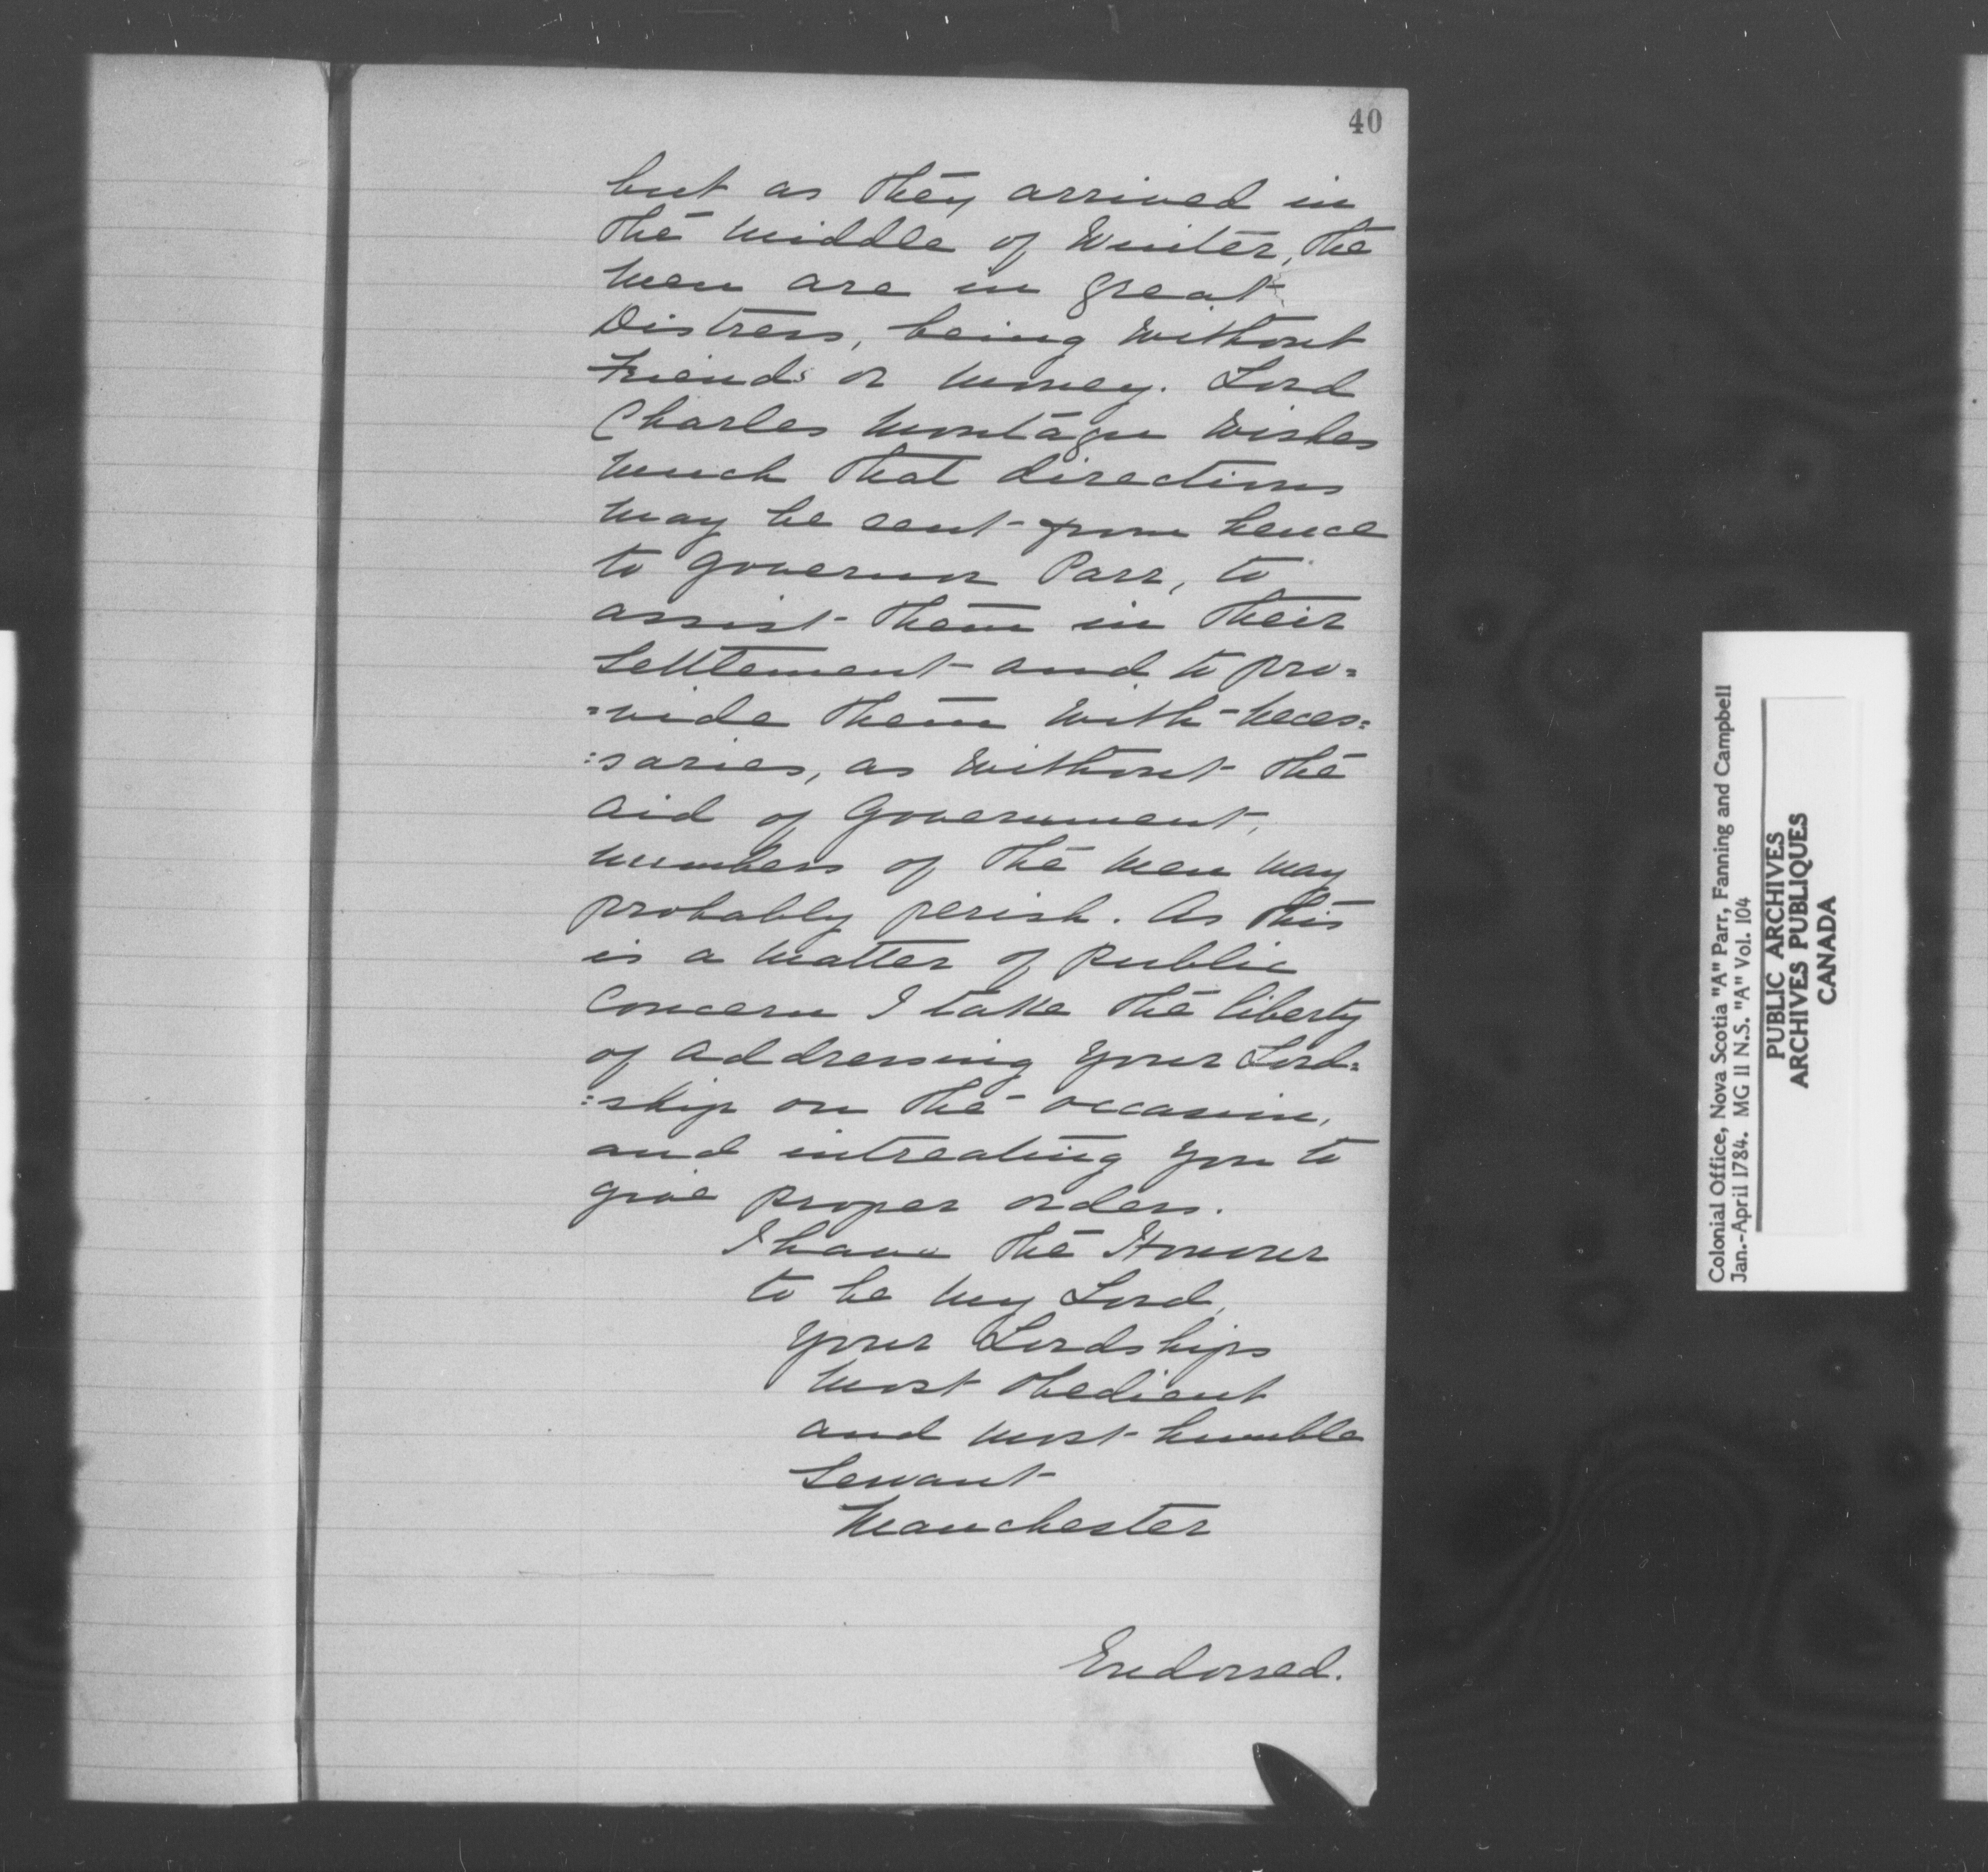 40
but as they arrived in
the middle of Winter, the
men are in great
Distress, being without
Friends or money. Lord
Charles Montagu wishes
much that directions
may be sent from hence
to Governor Parr, to
assist them in their
Settlement and to pro=
=vide them with neces=
:saries, as without the
aid of Government,
numbers of the men may
probably perish. As this
is a matter of public
Concern I take the liberty
of addressing your Lord=
:ship on the occasion,
and intreating you to
give proper orders.
I have the Honour
to be my Lord,
Your Lordships
most obedient
and most humble
Servant
Manchester
Endorsed.
Colonial Office, Nova Scotia "A" Parr, Fanning and Campbell
Jan.-April 1784. MG 11 N.S. "A" Vol. 104
PUBLIC ARCHIVES
ARCHIVES PUBLIQUES
CANADA